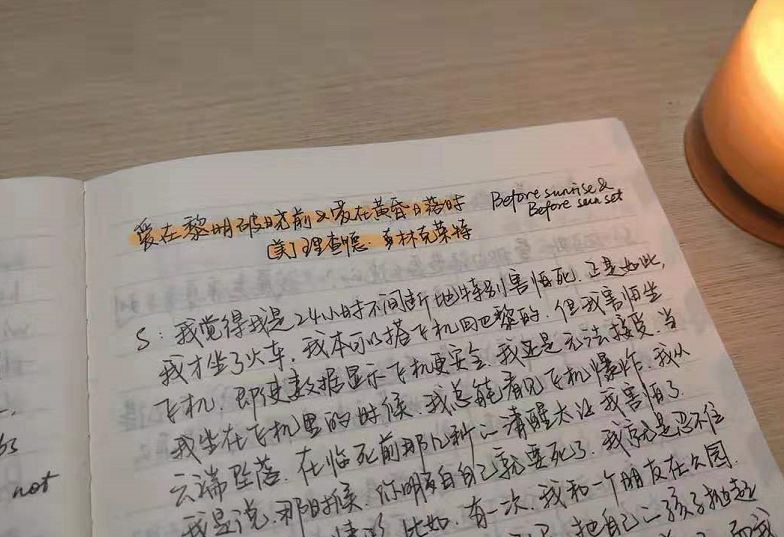 爱在黎明破晓前&爱在黄昏日落时 Before sunrise & Before sunset
[美]理查德·林克莱特
S：我觉得我是24小时不间断地特别害怕死.正是如此,
我才坐了火车.我本可以搭飞机回巴黎的.但我害怕坐
飞机.即使数据显示飞机更安全.我还是无法接受.当
我坐在飞机里的时候.我总能看见飞机爆炸.我从
云端坠落.在临死前那几秒的清醒太让我害怕了.
我是说.那时候.你明白自己就要死了.我就是忍不住
情形.比如.有一次.我和一个朋友在公园.
把自己的孩子抛起
not